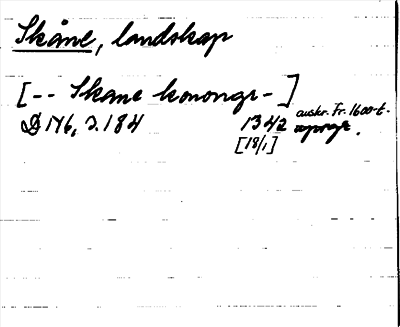 Skåne, landskap
[-- Skane konongr -]
D 176, s. 184 1342 avskr. Fr. 1600-t.
[18/1]